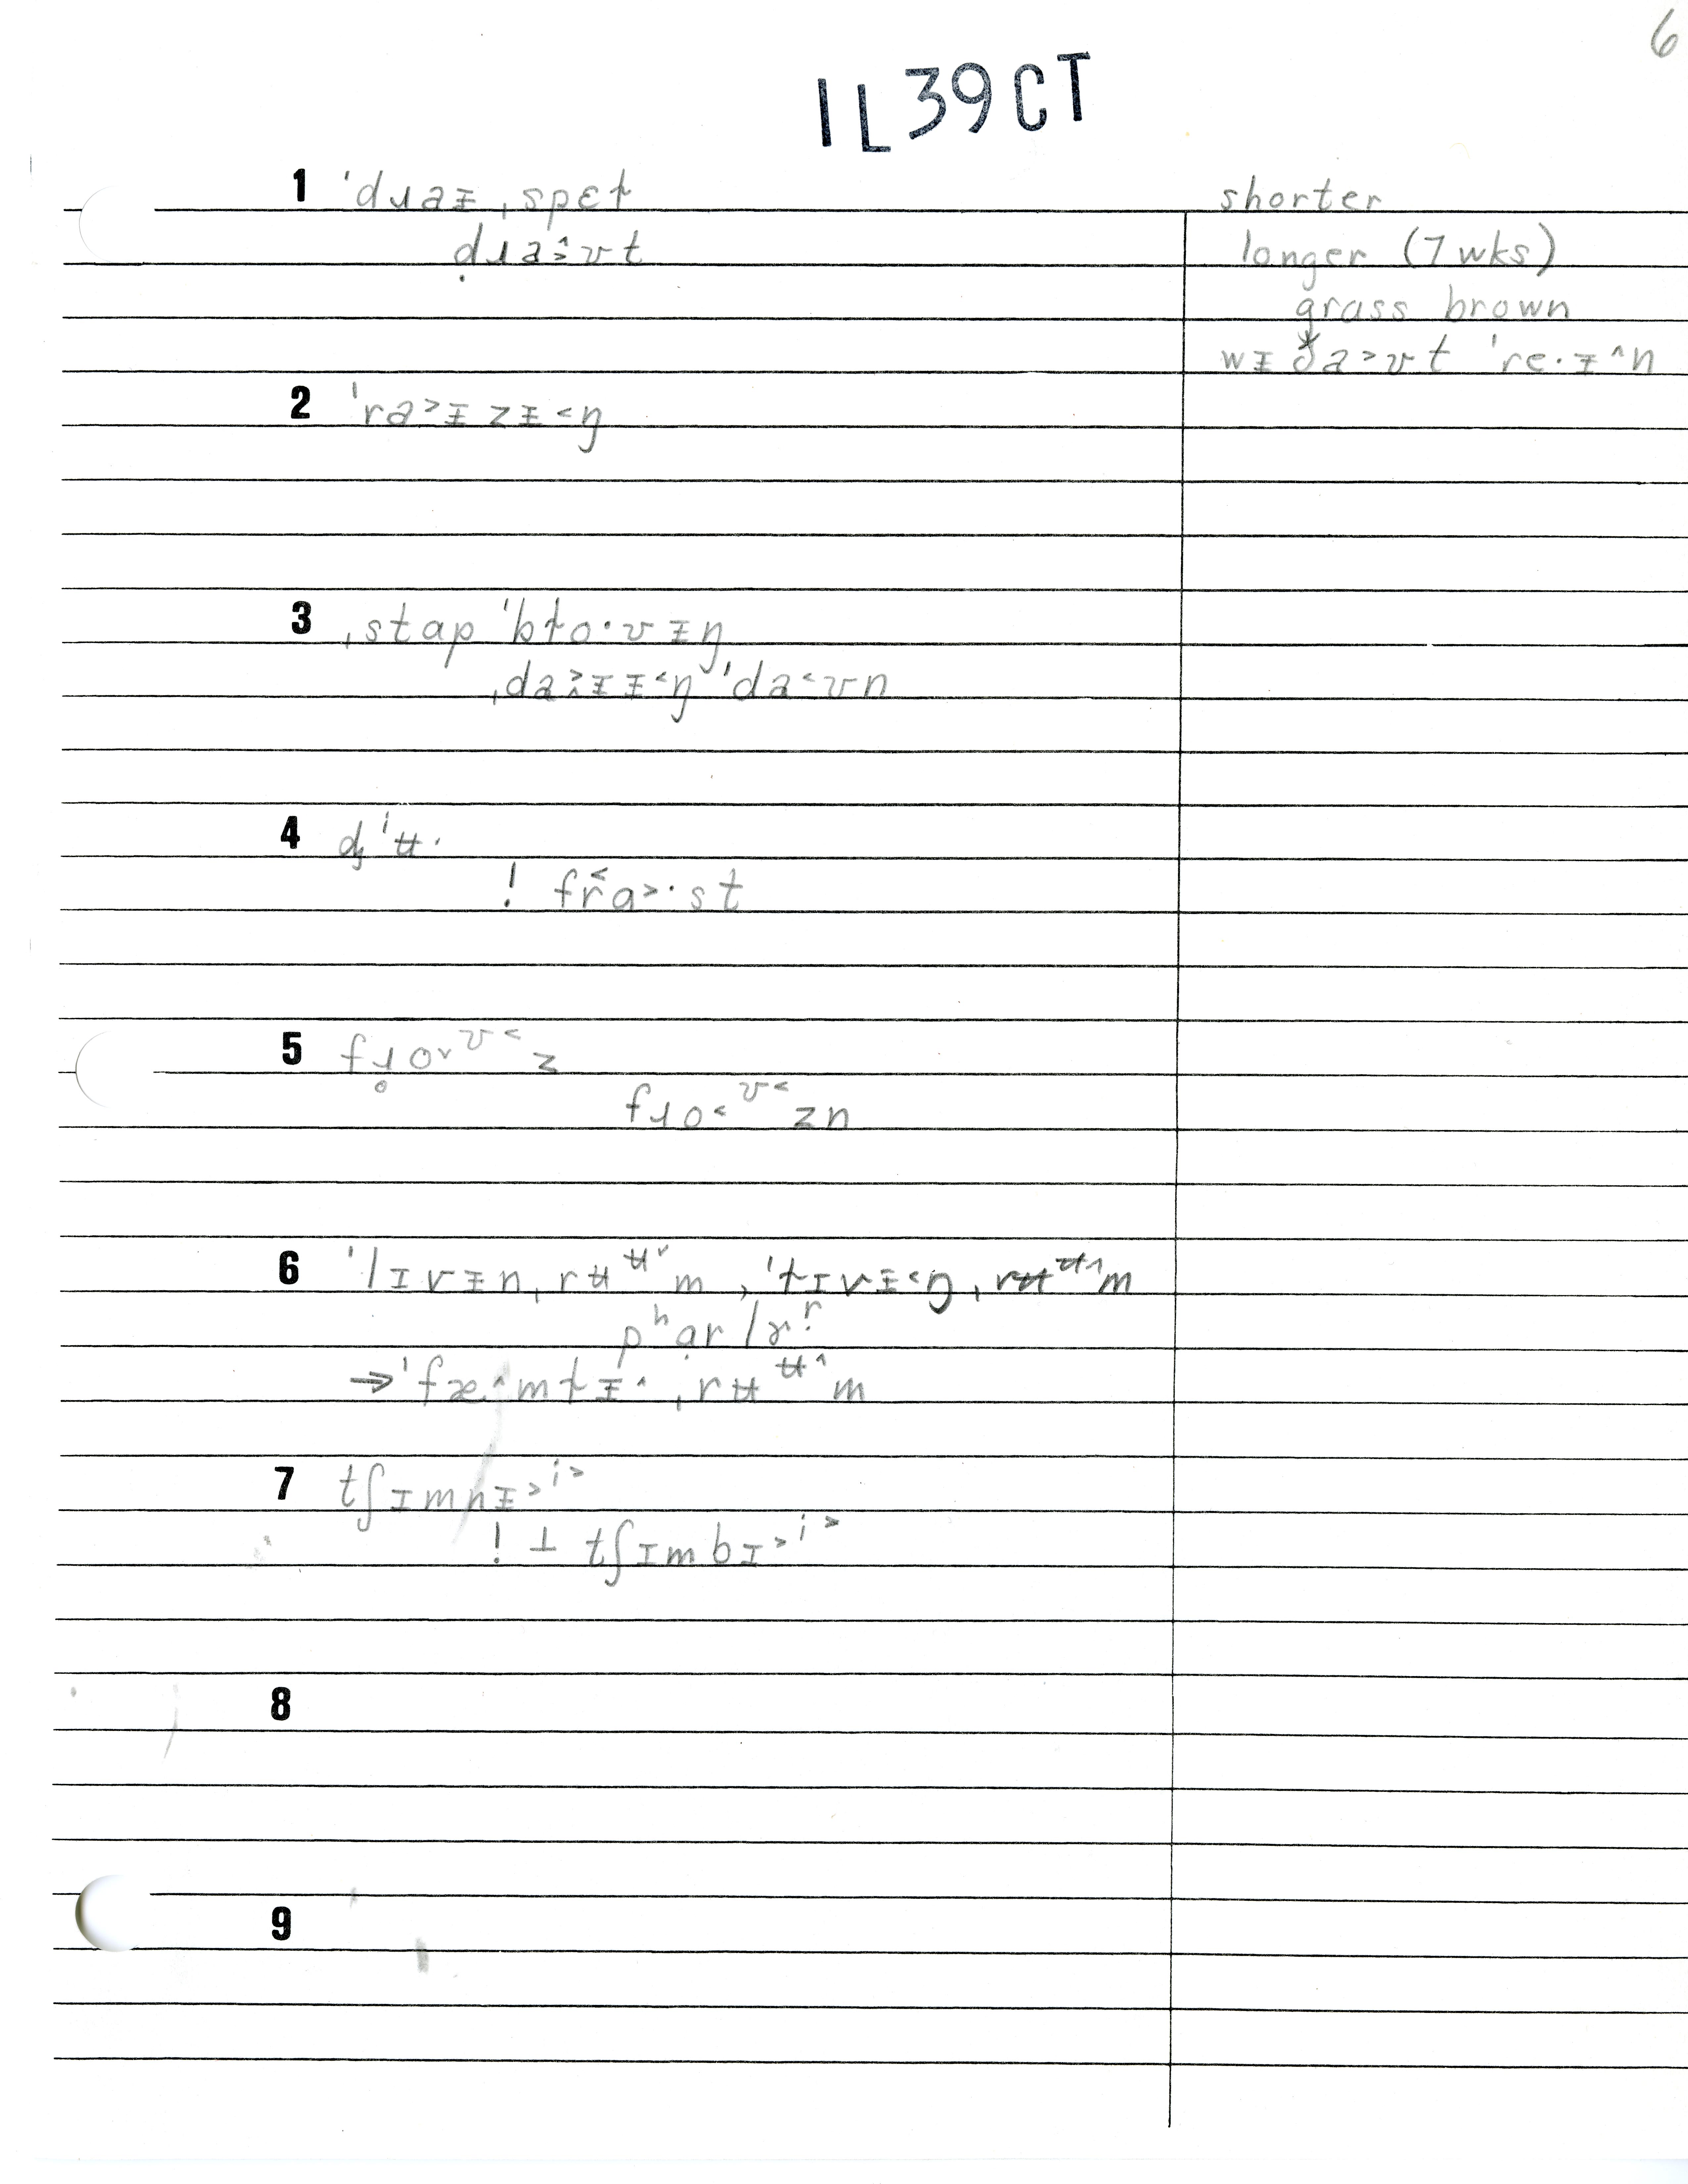 6
IL39CT
1 ˈdɹaɪ ˌspɛɫ shorter
dɹaʊt longer (7 wks)
grass brown
wɪða˃ʊt ˈre·ɪ^n
2 ˈra˃ɪzɪ˂ŋ
3 ˌstap ˈbɫo·ʊɪŋ
ˌdaɪɪ˂ŋ ˈda˂ʊn
4
! fra˃·st
5
fɹo˂ʊ˂zn
6 ˈlɪvɪn ˌrʉʉ˅m, ˈɫɪvɪ˂ŋ ˌrʉʉ^m
→ ˈfæ^mɫɪ^ ˌrʉʉ^m
7 tʃɪmnɪ˃i˃
! ⊥ tʃɪmbɪ˃i˃
8
9